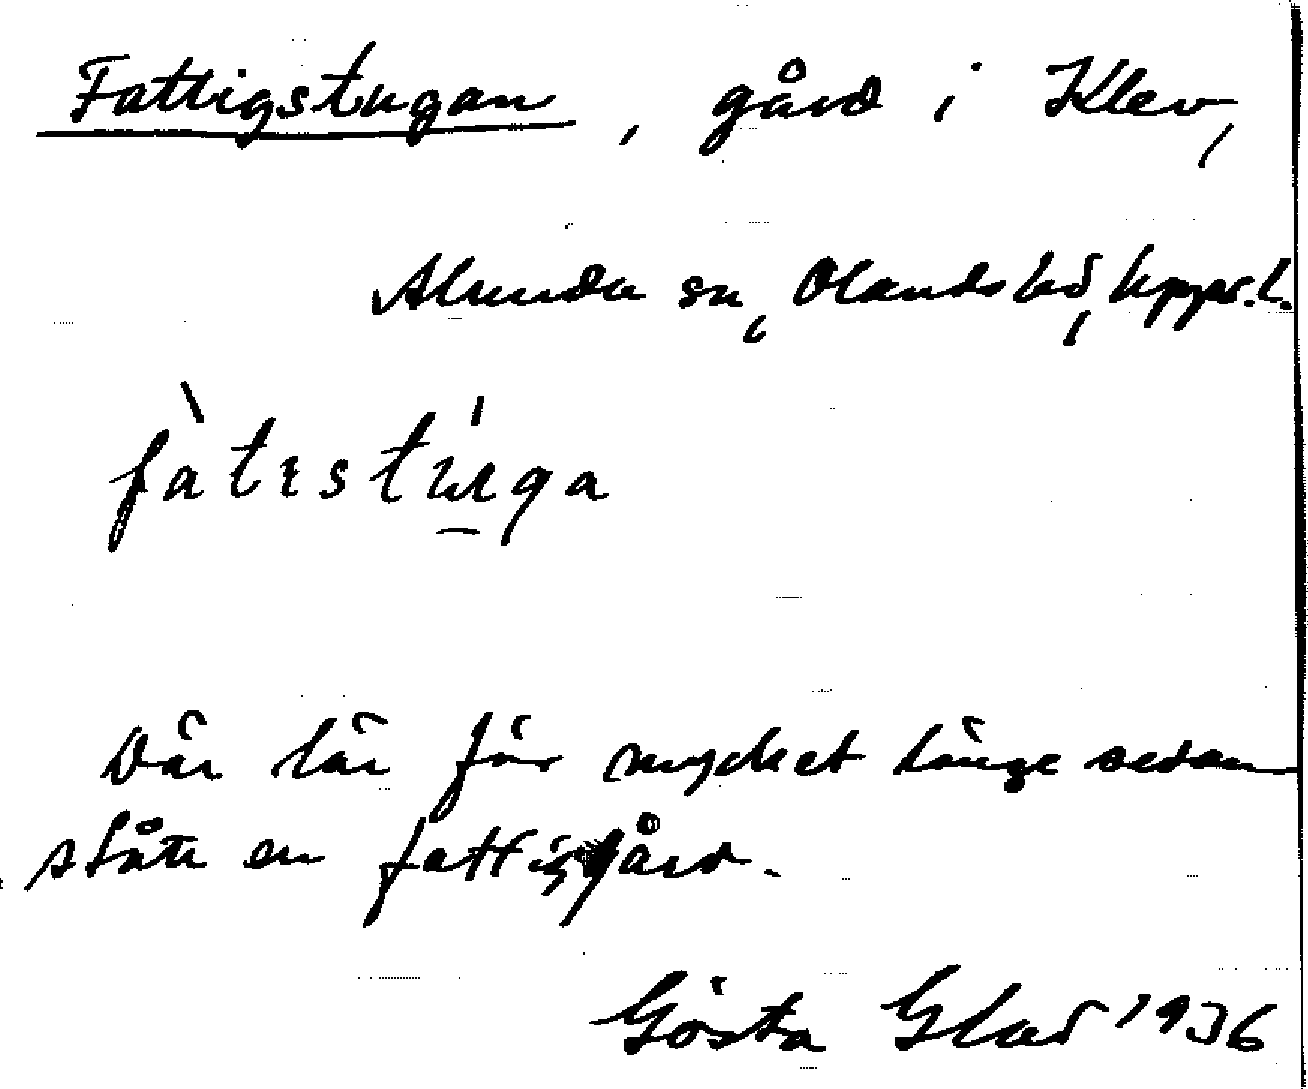 Fattigstugan, gård i Klev,
Alunda sn, Olands hd, Upps. l.
fàtıstúga
Där lär för mycket länge sedan
stått en fattiggård.
Gösta Glad 1936